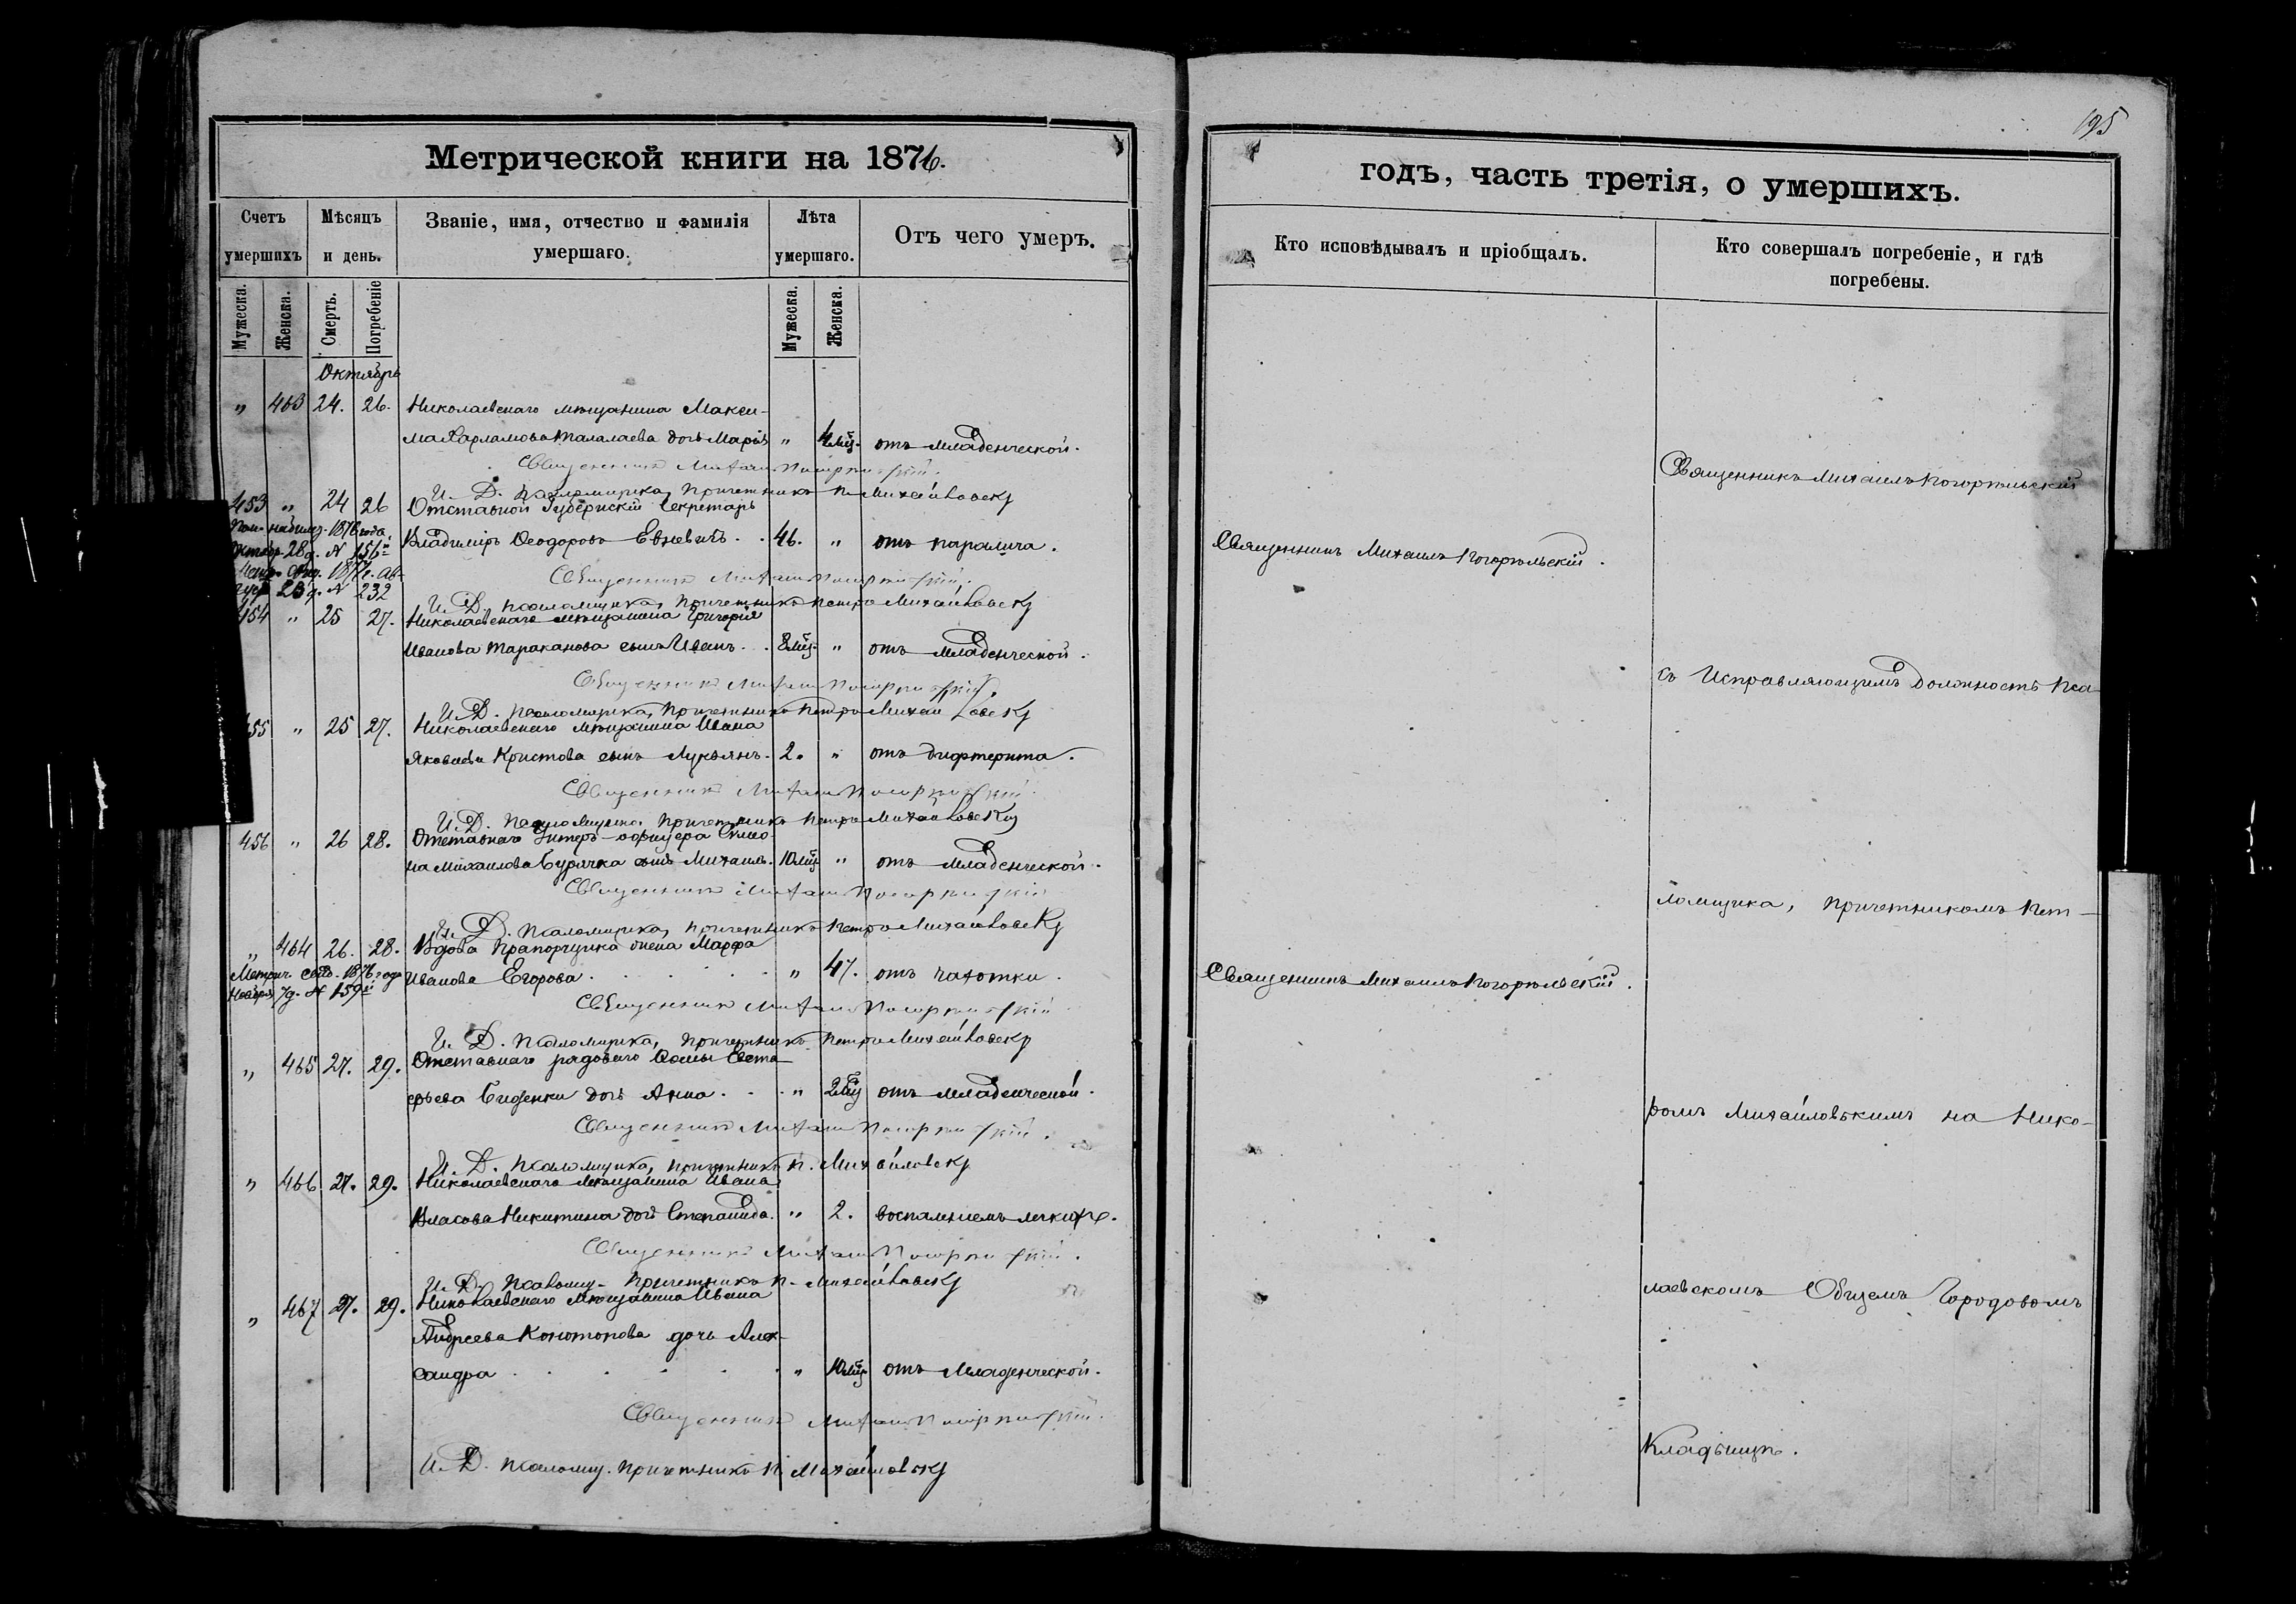 195
Метрической книги на 1876.
годъ, часть третія, о умершихъ.
Счетъ умершихъ
Мѣсяцъ и день.
Званіе, имя, отчество и фамилія умершаго.
Лѣта умершаго.
Отъ чего умеръ.
Кто исповѣдывалъ и пріобщалъ.
Кто совершалъ погребеніе, и гдѣ погребены.
Мужеска. Женска. Смерть. Погребеніе Мужеска. Женска.
Октябрь
" 463 24. 26. Николаевскаго мѣщанина Макси-
ма Харламова Талалаева дочь Марія " 4 мѣц. отъ младенческой.
Священникъ Михаилъ Погорѣльскій.
И. Д. псаломщика, причетникъ П. Михайловскій
453 " 24 26 Отставной Губернскій Секретарь
1876 года,
Октяб. 28 д. N 156й
Владиміръ Ѳеодоровъ 46. " отъ паралича.
1877 г. Ав-
23 д. N 232
Священникъ Михаилъ Погорѣльскій.
И. Д. псаломщика, причетникъ Петръ Михайловскій
454 " 25 27. Николаевскаго мѣщанина Григорія
Иванова Тараканова сынъ Иванъ. . 8 мѣц. " отъ младенческой.
Священникъ Михаилъ Погорѣльскій.
И. Д. псаломщика, причетникъ Петръ Михайловскій
455 " 25 27. Николаевскаго мѣщанина Ивана
Яковлева Христова сынъ Лукьянъ. 2. " отъ дифтерита.
Священникъ Михаилъ Погорѣльскій.
И. Д. псаломщика, причетникъ Петръ Михайловскій
456 " 26 28. Отставнаго Унтеръ-офицера Симо-
на Михайлова Бурячка сынъ Михаилъ. 10 мѣц. " отъ младенческой.
Священникъ Михаилъ Погорѣльскій
И. Д. псаломщика, причетникъ Петръ Михайловскій
" 464 26. 28. Вдова Прапорщика жена Марфа
Метрич. свид. 1876 года
Ноября 7 д. N 159й
Иванова Егорова. . . . . . " 47. отъ чахотки.
Священникъ Михаилъ Погорѣльскій
И. Д. псаломщика, причетникъ Петръ Михайловскій
" 465 27. 29. Отставнаго рядоваго Ѳомы Евста-
фьева дочь Анна. . . " 2 мѣц отъ младенческой.
Священникъ Михаилъ Погорѣльскій.
И. Д. псаломщика, причетникъ П. Михайловскій
" 466 27. 29. Николаевскаго мѣщанина Ивана
Власова Никитина дочь Степанида. " 2. воспаленіемъ легкихъ.
Священникъ Михаилъ Погорѣльскій.
И. Д. псаломщ. причетникъ П. Михайловскій
" 467 27. 29. Николаевскаго мѣщанина Ивана
Андреева Конотопова дочь Алек-
сандра . . . . . . " 10 мѣц. отъ младенческой.
Священникъ Михаилъ Погорѣльскій.
И. Д. псаломщ. причетникъ П. Михайловскій
Священникъ Михаилъ Погорѣльскій.
Священникъ Михаилъ Погорѣльскій.
Священникъ Михаилъ Погорѣльскій
съ Исправляющимъ Должность Пса-
ломщика, причетникомъ Пет-
ромъ Михайловскимъ на Нико-
лаевскомъ Общемъ Городовомъ
Кладбищѣ.